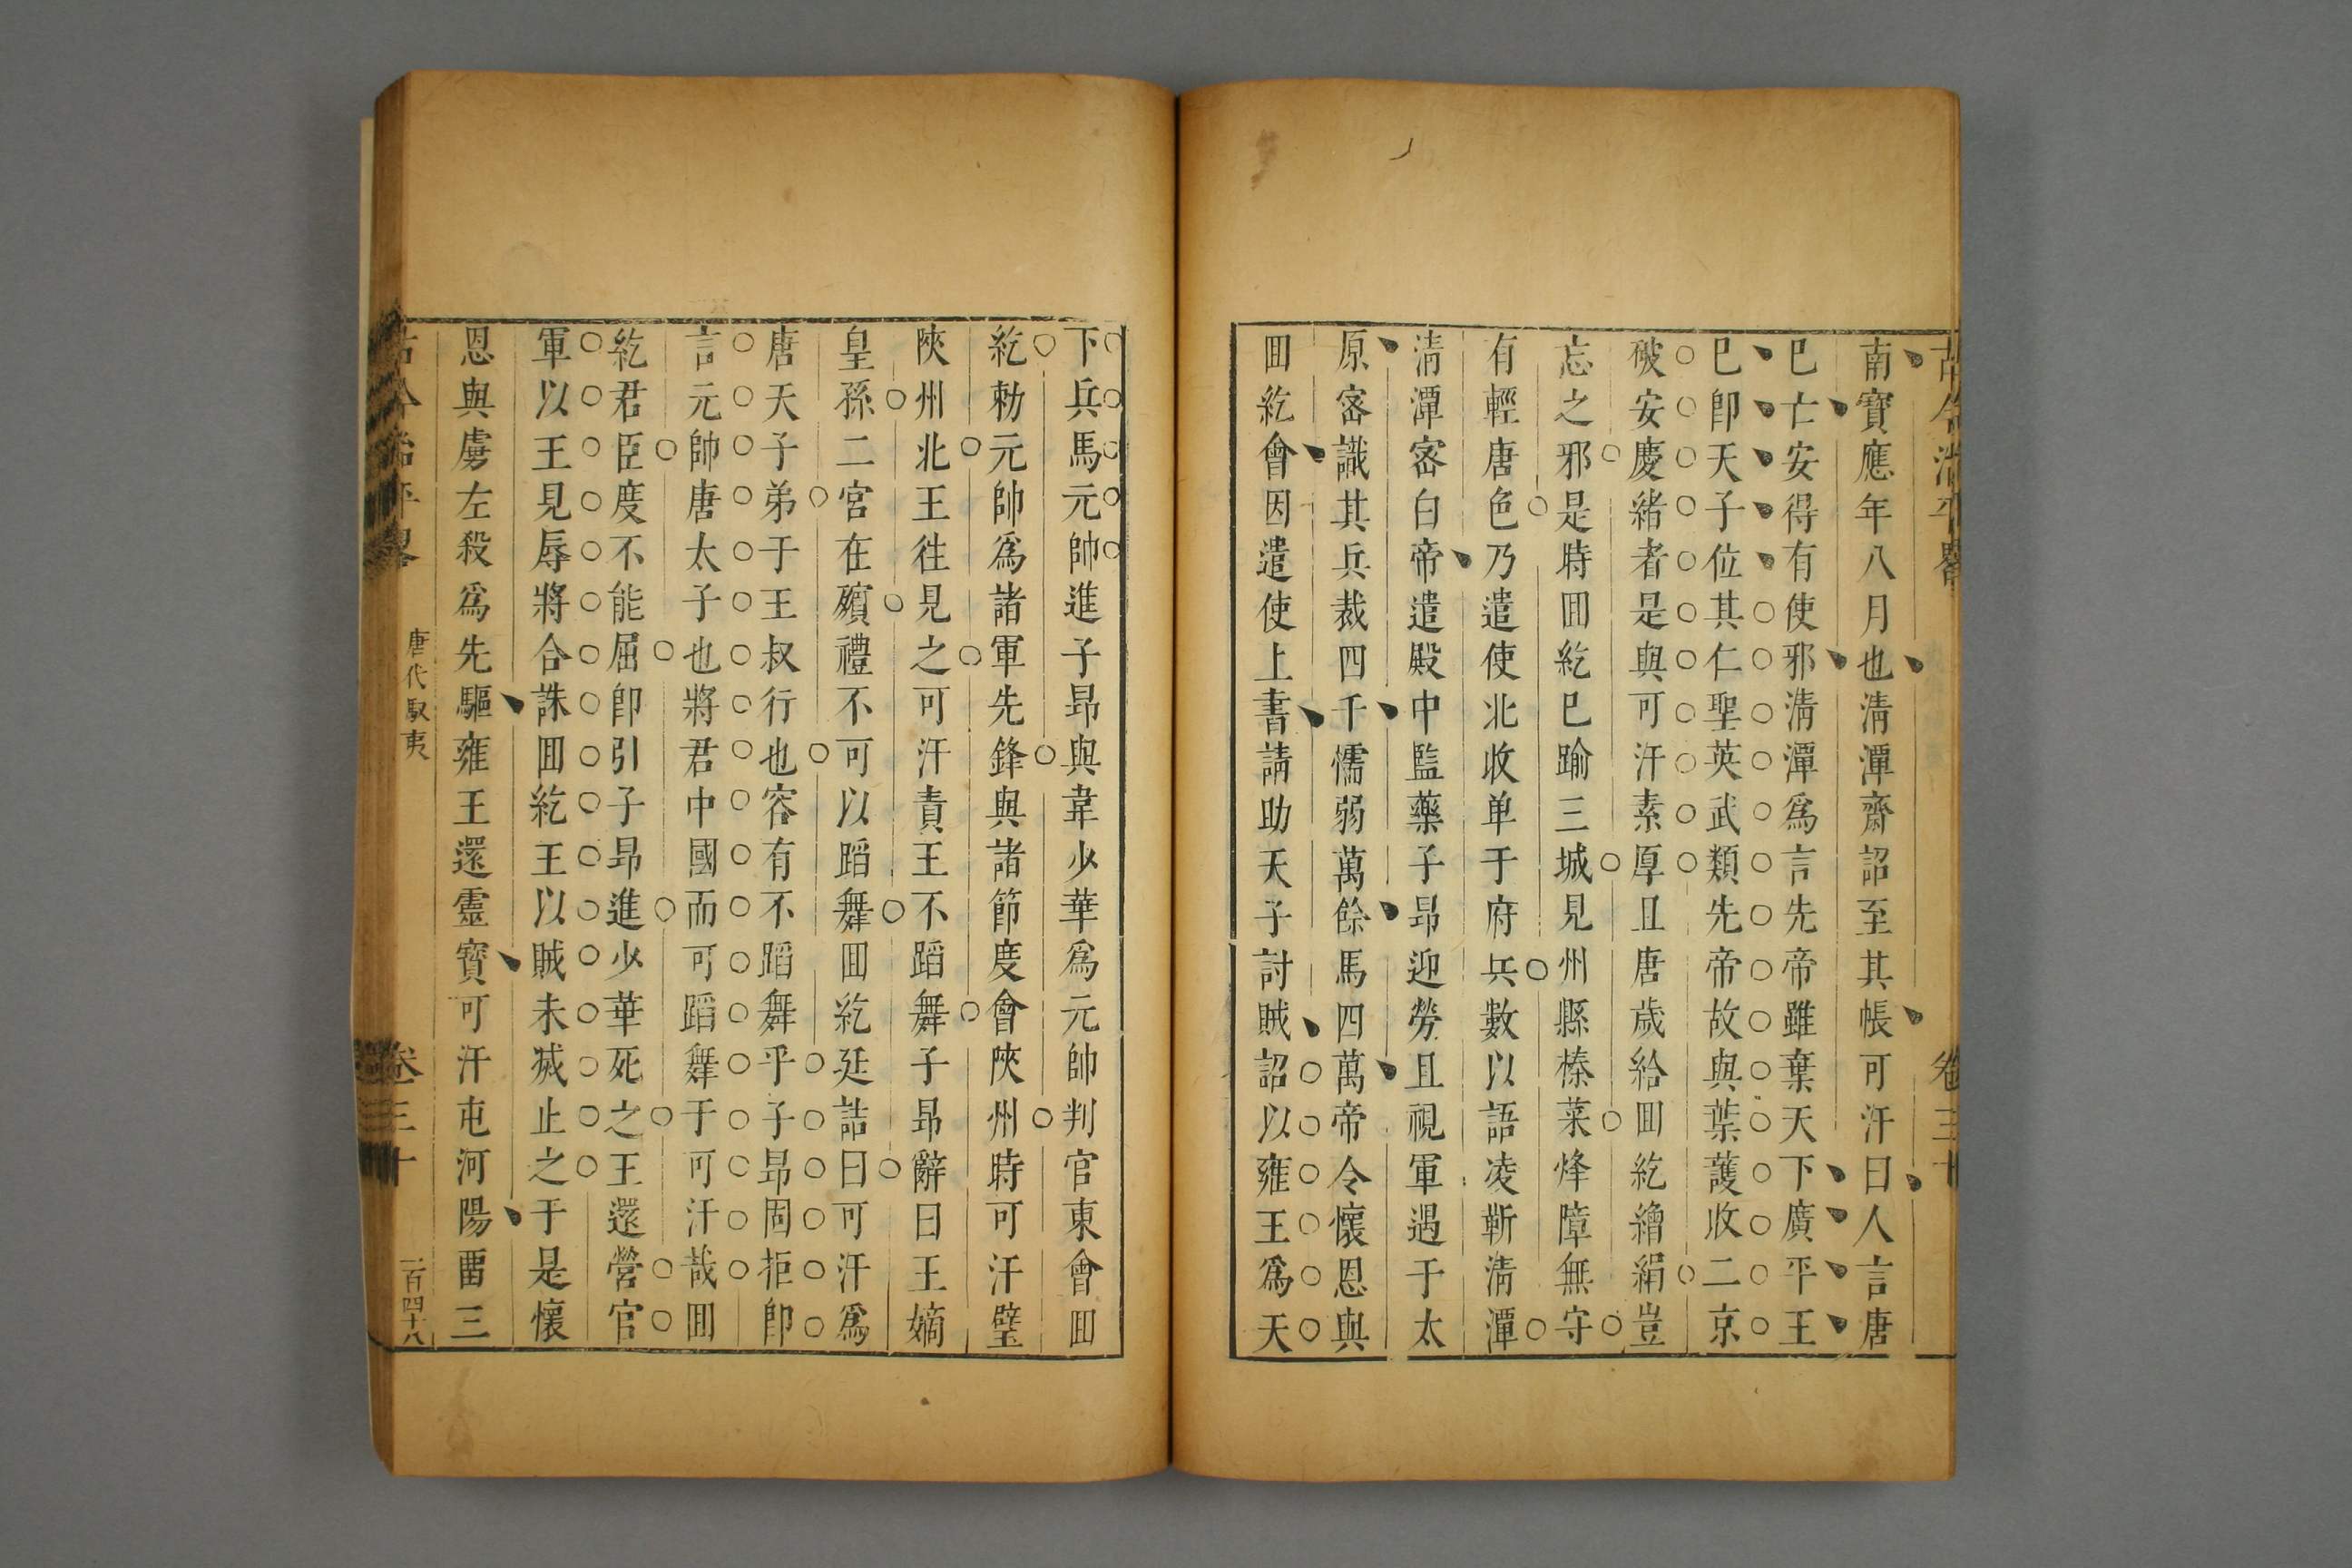 古今治平畧
卷三十
南寶應年八月也淸潭齎詔至其帳可汗曰人言唐
巳亡安得有使邪淸潭爲言先帝雖棄天下廣平王
巳卽天子位其仁聖英武類先帝故與葉護收二京
破安慶緒者是與可汗素厚且唐歲給囬紇繒絹豈
忘之邪是時囬紇巳踰三城見州縣榛萊烽障無守
有輕唐色乃遣使北收单于府兵數以語凌靳淸潭
淸潭宻白帝遣殿中監藥子昻迎勞且視軍遇于太
原宻識其兵裁四千懦弱萬餘馬四萬帝令懷恩與
囬紇會因遣使上書請助天子討賊詔以雍王爲天
下兵馬元帥進子昻與韋少華爲元帥判官東會囬
紇勅元帥爲諸軍先鋒與諸節度會陜州時可汗壁
陜州北王徃見之可汗責王不蹈舞子昻辭曰王嫡
皇孫二宮在殯禮不可以蹈舞囬紇延詰曰可汗爲
唐天子弟于王叔行也容有不蹈舞乎子昻固拒卽
言元帥唐太子也將君中國而可蹈舞于可汗哉囬
紇君臣度不能屈卽引子昻進少華死之王還營官
軍以王見辱將合誅囬紇王以賊未滅止之于是懷
恩與虜左殺爲先驅雍王還靈寶可汗屯河陽畱三
古今治平畧
唐代馭夷
卷三十
一百四十八